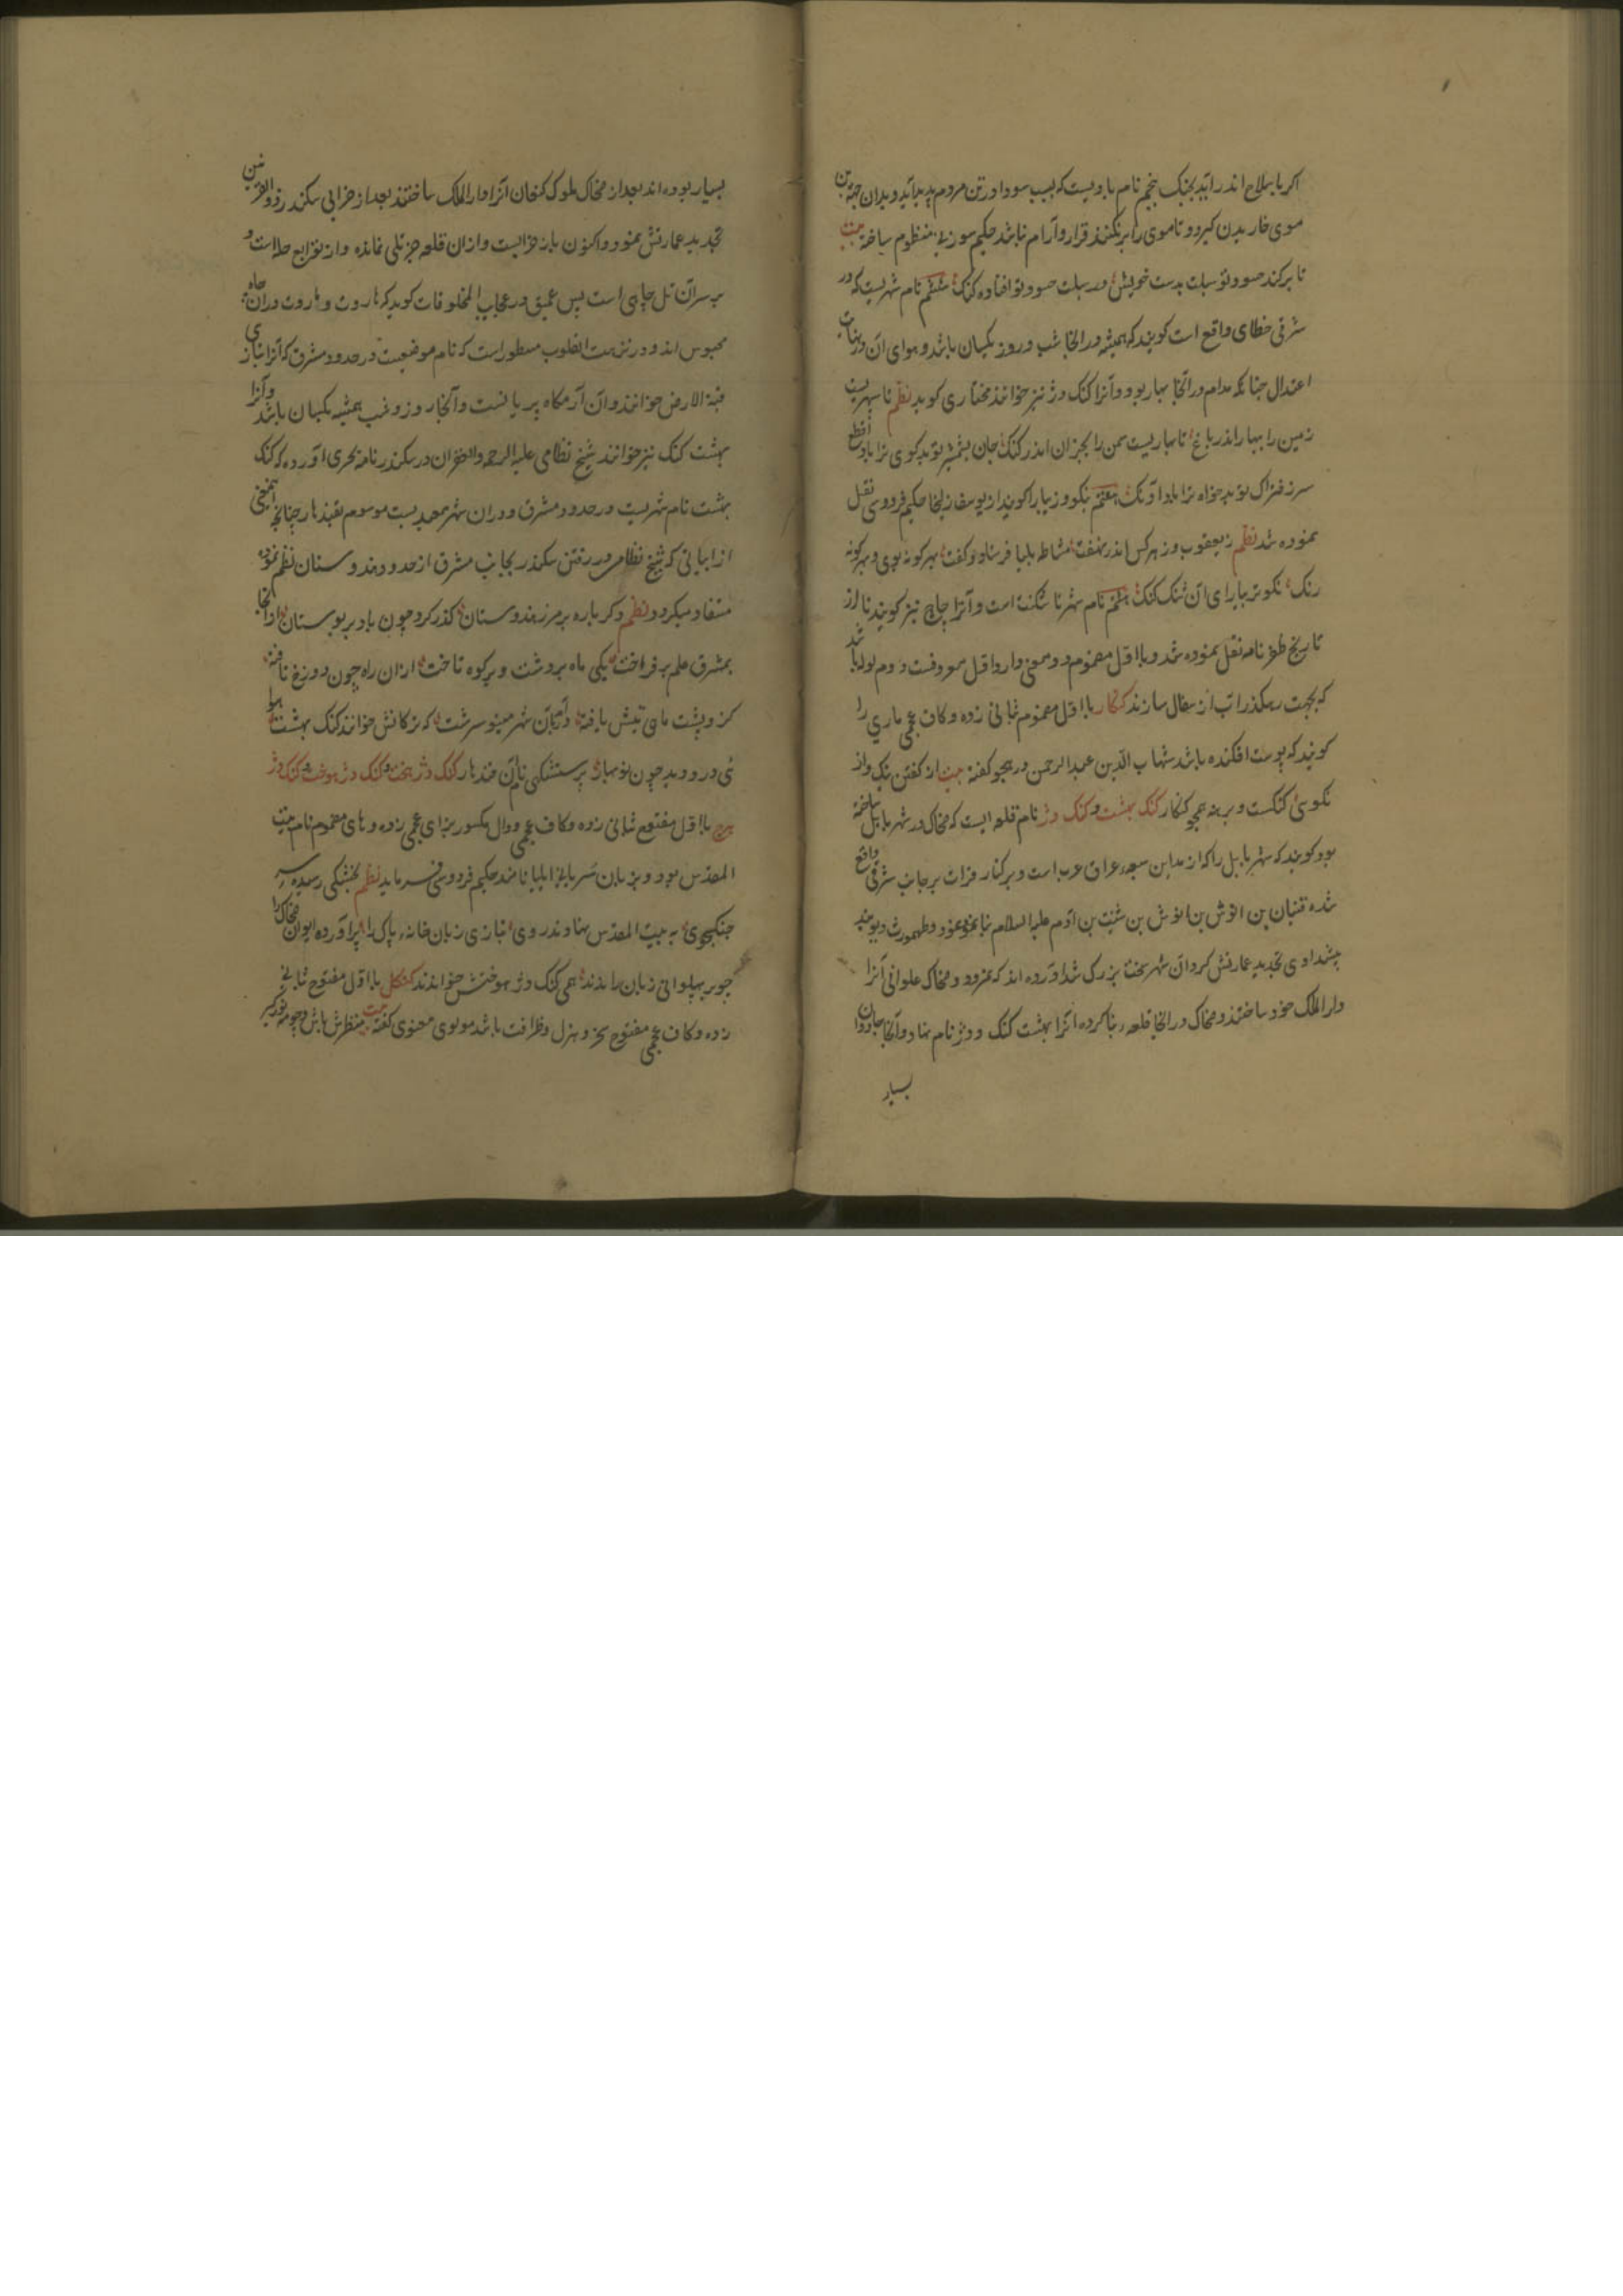 اکر با سلاح اندر آید بجنک پنجم نام بادیست که بسبب سودا در تن مردم پدید آید و بدان جهة بن
موی خاریدن کیرد و تا موی را بر نکنند قرار و آرام نباشد حکیم سوزنی منظوم ساخته بیت
تا برکند حسود تو سبلت بدست خویش در سبلت حسود تو افتاده کنک ششم نام شهریست که در
شرقی خطای واقع است کویند که همیشه در انجا شب و روز یکسان باشد و هوای آن در نهایت
اعتدال چنانکه مدام در آنجا بهار بود و آنرا کنک دژ نیز خوانند مختاری کوید نظم تا بهریست
زمین را بهار اندر باغ تا بهاریست سمن را بخزان اندر کنک جان بشمشیر تو بد کوی ترا باد
سر ز فتراک تو بد خواه ترا باد آونک هفتم نکو و زیبا را کویند از یوسف زلیخا حکیم فردوسی نقل
نموده شد نظم ز یعقوب وز هر کس اندر نهفت مشاطه بلیا فرستاد و کفت بهر کونه بوی و بهر کونه
رنک نکوتر بیارای آن شنک کنک هشتم نام شهر تاشکند است و آنرا چاچ نیز کویند تا از
تاریخ ظفر نامه نقل نموده شد و با اول مضموم دو معنی دارد اول معروفست دوم لوله باشد
که بجهت رهکذر آب از سفال سازند کنکار با اول مضموم بثانی زده و کاف عجمی ماری را
کویند که پوست افکنده باشد شهاب الدین عبد الرحمن در هجو کفته بیت از کفتن نیک و از
نکوئی کنکست و برهنه همچو کنکار کنک بهشت و کنک دژ نام قلعه ایست که ضحاک در شهر بابل ساخته
بود کویند که شهر بابل را که از مداین سبعه عراق عربست و بر کنار فرات بر جانب شرقی واقع
شده قینان بن انوش بن شیث بن آدم علیه السلام بنا نموده بود و طهمورث دیوبند
پیشدادی تجدید عمارتش کرد آن شهر سخت بزرک شد آورده اند که نمرود و ضحاک علوانی آنرا
دار الملک خود ساختند و ضحاک در انجا قلعه بنا کرده آنرا بهشت کنک و دژ نام نهاد و آنجا جادوان
بسیار
بسیار بوده اند بعد از ضحاک ملوک کنعان آنرا دار الملک ساختند بعد از خرابی سکندر ذو القرنین
تجدید عمارتش نمود و اکنون باز خرابست و از آن قلعه جز تلی نمانده و از توابع حله است و
بر سر آن تل چاهی است بس عمیق در عجایب المخلوقات کوید که هاروت و ماروت در آن چاه
محبوس اند و در نزهت القلوب مسطور است که نام موضعیست در حدود مشرق که آنرا بتازی
قبة الارض خوانند و آن آرامکاه پریانست و آنجا روز و شب همیشه یکسان باشد و آنرا
بهشت کنک نیز خوانند شیخ نظامی علیه الرحمه و الغفران در سکندر نامه بحری آورده که کنک
بهشت نام شهریست در حدود مشرق و در آن شهر معبدیست موسوم بقندهار چنانچه اینمعنی
از ابیاتی که شیخ نظامی در رفتن سکندر بجانب مشرق از حدود هندوستان نظم نموده
مستفاد میکردد نظم دکر باره بر مرز هندوستان کذر کرد چون باد بر بوستان از آنجا
بمشرق علم بر فراخت یکی ماه بر دشت و بر کوه تاخت از آن راه چون دوزخ تافته
کزو پشت ماهی تپش یافته در آمد بآن شهر مینو سرشت که ترکانش خوانند کنک بهشت
در و دید چون نو بهار پرستشکهی نام آن قندهار کنک دژ بخت و کنک دژ هوخت و کنک دژ
هرج با اول مفتوح بثانی زده و کاف عجمی و دال مکسور بزای عجمی زده و های مضموم نام بیت
المقدس بود و بزبان سریانی ایلیا نامند حکیم فردوسی فرماید نظم بخشکی رسیدند سر
جنکجوی به بیت المقدس نهادند روی بتازی زبان خانه پاک را بر آورده ایوان ضحاک را
چو بر پهلوانی زبان راندند همی کنک دژ هوختش خواندند کنکل با اول مفتوح بثانی
زده و کاف عجمی مفتوح سخر و هزل و ظرافت باشد مولوی معنوی کفته بیت